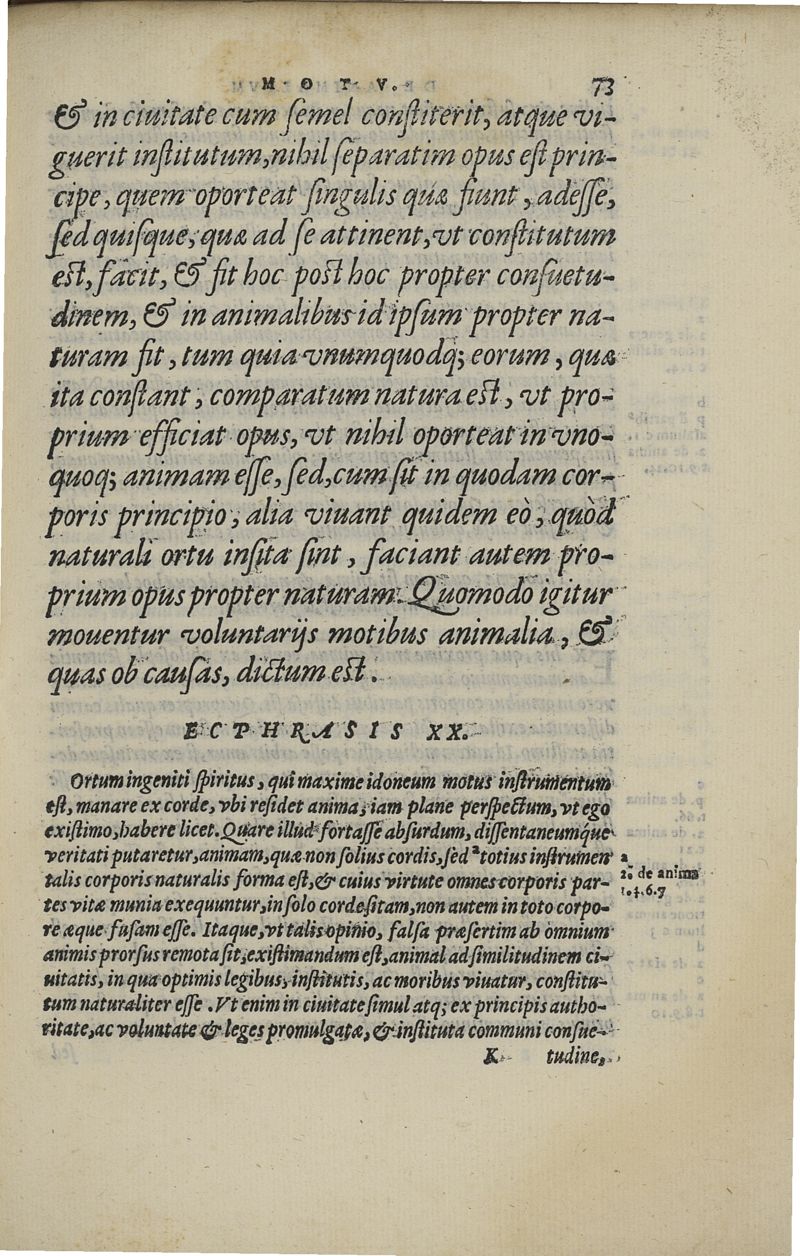 M O T V. 73
& in ciuitate cum ſemel conſtiterit, atque vi-
guerit inſtitutum, nihil ſeparatim opus eſt prin-
cipe, quem oporteat ſingulis quæ fiunt, adeſſe,
ſed quiſque, quæ ad ſe attinent, vt conſtitutum
eſt, facit, & fit hoc poſt hoc propter conſuetu-
dinem, & in animalibus id ipſum propter na-
turam fit, tum quia vnumquodq; eorum, quæ
ita conſtant, comparatum natura eſt, vt pro-
prium efficiat opus, vt nihil oporteat in vno-
quoq; animam eſſe, ſed, cum ſit in quodam cor-
poris principio, alia viuant quidem eò, quòd
naturali ortu inſita ſint, faciant autem pro-
prium opus propter naturam. Quomodo igitur
mouentur voluntarijs motibus animalia, &
quas ob cauſas, dictum eſt.
ECPHRASIS XX.
Ortum ingeniti ſpiritus, qui maxime idoneum motus inſtrumentum
eſt, manare ex corde, vbi reſidet anima, iam plane perſpectum, vt ego
exiſtimo, habere licet. Quare illud fortaſſe abſurdum, diſſentaneumque
veritati putaretur, animam, quæ non ſolius cordis, ſed ᵃ totius inſtrumen
talis corporis naturalis forma eſt, & cuius virtute omnes corporis par-
tes vitæ munia exequuntur, in ſolo corde ſitam, non autem in toto corpo-
re æque fuſam eſſe. Itaque, vt talis opinio, falſa præſertim ab omnium
animis prorſus remota ſit, exiſtimandum eſt, animal ad ſimilitudinem ci-
uitatis, in qua optimis legibus, inſtitutis, ac moribus viuatur, conſtitu-
tum naturaliter eſſe. Vt enim in ciuitate ſimul atq; ex principis autho-
ritate, ac voluntate & leges promulgatæ, & inſtituta communi conſue-
K tudine,
a
2º de anima
6.7